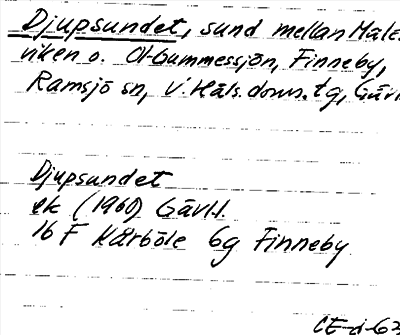 Djupsundet, sund mellan Måles
viken o. Ol-Gummessjön, Finneby,
Ramsjö sn, V. Häls. doms. tg, Gävl
Djupsundet
ek (1960) Gävl.l.
16 F Kårböle 6g Finneby
CE-d-63